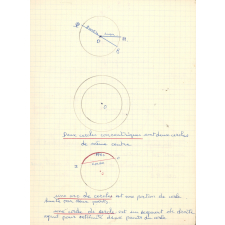 O
Deux cercles concentriques sont deux cercles
de même centre.
arc
corde
un arc de cercle est une portion de cercle
limité par deux points.
une corde de cercle est un segment de droite
ayant pour extrémités deux points du cercle